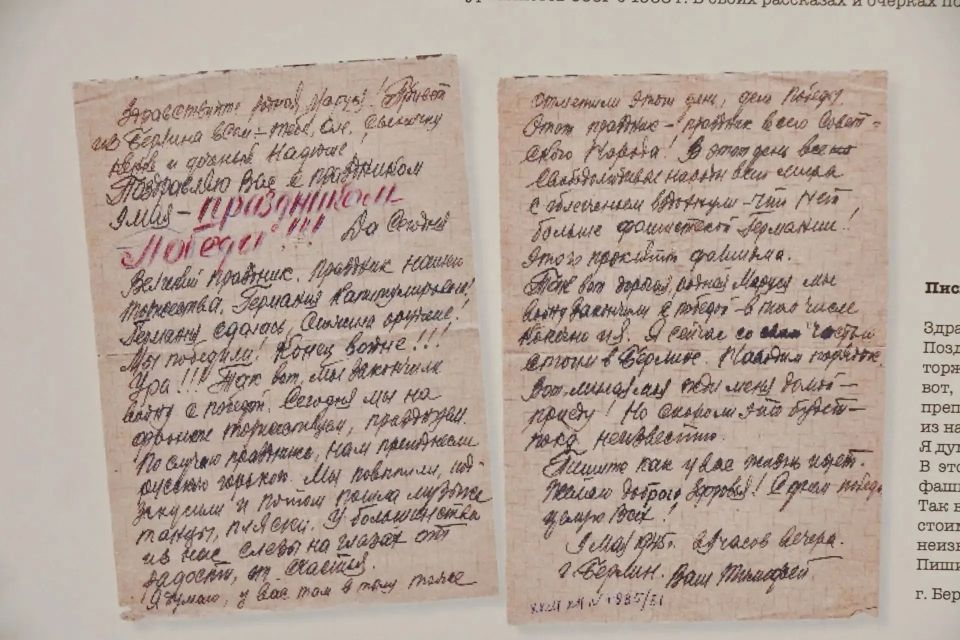 в своих рассказах и очерках
Здравствуйте родная Маруся! Привет
из Берлина всем – тебе, сыночку
и дочечке Надюше!
Поздравляю Вас с праздником
9 мая – праздником
Победы!!! Да сегодня
Великий праздник. Праздник нашего
торжества. Германия капитулировала!
Германия сдалась, сложила оружие!
Мы победили! Конец войне!!!
Ура!!! Так вот, мы закончили
войну с победой. Сегодня мы на
торжествуем, празднуем.
По случаю праздника, нам преподнесли
русской горькой. Мы выпили,
закусили и потом пошла музыка
танцы, пляски. У большинства
из нас слезы на глазах от
радости, от счастья.
Я думаю, у вас там в тылу тоже
отметили этот день, день Победы.
Этот праздник – праздник всего Совет-
ского Народа! В этот день все
свободолюбивые народы всего мира
с облегчением вздохнули – что нет
больше фашистской Германии!
Этого проклятого фашизма.
Так вот дорогая, родная Маруся мы
войну закончили с победой – в том числе
конечно и я. Я сейчас со своей частью
стоим в Берлине. Наводим порядок.
Вот милая моя жди меня домой –
приеду! Но сколько это будет –
пока неизвестно.
Пишите как у вас жизнь идет.
Желаю доброго здоровья! С днем победы
целую Всех!
9 мая 1945г. часов вечера.
г. Берлин. Ваш Тимофей
Пис
Здра
Позд
торж
вот,
преп
из на
Я ду
В это
фаши
Так в
стоим
неизв
Пиши
г. Бер